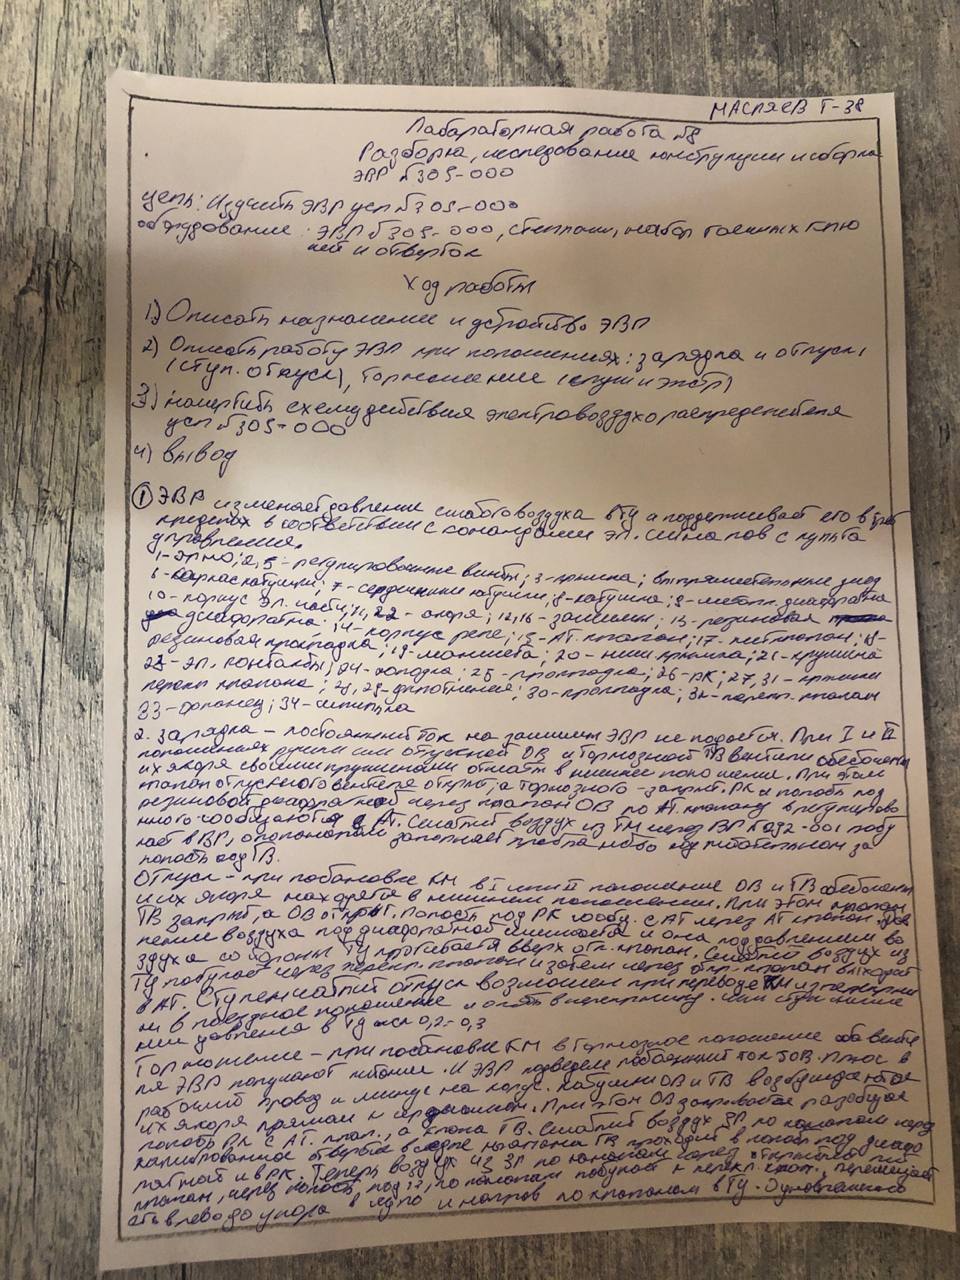 МАСЛЯЕВ Т-38
Лабараторная работа №8
Разборка, исследование конструкции и сборка
ЭВР №305-000
цель: Изучить ЭВР усл №305-000
оборудование: ЭВР №305-000, стеллаж, набор гаечных клю
чей и отверток
Ход работы
1) Описать назначение и устройство ЭВР
2) Описать работу ЭВР при положениях: зарядка и отпуск,
(ступ. отпуск), торможение (служ и экстр)
3) начертить схему действия электровоздухораспределителя
усл №305-000
4) вывод
① ЭВР изменяет давление сжатого воздуха в ТЦ и поддерживает его в
пределах в соответствии с командами эл. сигналов с пульта
управления.
2,5- регулировочные винты; 3- крышка; выпрямительные диод
6- каркас катушки; 7- сердечники катушки; 8- катушка; 9- металл. диафрагма
10- корпус эл. части; 11, 22- якоря; 12,16- зажимы; 13- резиновая
диафрагма; 14- корпус реле; 15- АТ. клапан; 17- пит клапан; 18-
резиновая прокладка; 19- манжета; 20- ниж крышка; 21- пружина
23- эл. контакты; 24- колодка; 25- прокладка; 26- РК; 27, 31- крышки
перекл клапана; 28, 29- уплотнение; 30- прокладка; 32- перекл. клапан
33- фланец; 34- шпилька
2. зарядка - постоянный ток на зажимы ЭВР не подается. При I и II
положениях ручки км отпускной ОВ и тормозной ТВ вентили обесточены
их якоря своими пружинами отжаты в нижнее положение. При этом
клапан отпускного вентиля открыт, а тормозного - закрыт. РК и полость под
резиновой диафрагмой через клапан ОВ по АТ. клапану в регулирово
чного сообщаются с АТ. Сжатый воздух из ТМ через ВР №292-001 посту
пает в ЗР, а по каналам заполняет
полость под ТВ.
Отпуск - при постановке КМ в I или II положение ОВ и ТВ обесточены
и их якоря находятся в нижнем положении. При этом клапан
ТВ закрыт, а ОВ открыт. Полость под РК сообщ. с АТ через АТ клапан. Дав
ление воздуха под диафрагмой снижается и она под давлением во
здуха со стороны ТЦ прогибается вверх отк. клапан. Сжатый воздух из
ТЦ поступает через перекл. клапан и затем через откр. клапан выходит
в АТ. Ступенчатый отпуск возможен при переводе КМ из перекры
ши в поездное положение и опять в перекрышу. мин ступ сниже
ния давления в ТЦ 0,2-0,3
Торможение - при постановке КМ в тормозное положение оба венти
ля ЭВР получают питание. К ЭВР подведен постоянный ток 50В. Плюс в
рабочий провод и минус на корпус. Катушки ОВ и ТВ возбуждаются
их якоря прижаты к сердечникам. При этом ОВ закрывается разобщая
полость РК с АТ. клап., а клапан ТВ. Сжатый воздух ЗР по каналам через
калиброванное отверстие в седле клапана ТВ проходит в полость под диафр
рагмой и в РК. Теперь воздух из ЗР по каналам через открытый пит
клапан, через полость под 17, по каналам поступает к перекл. клап., перемещает
его влево до упора в седло и напрв по каналам в ТЦ. Одновременно